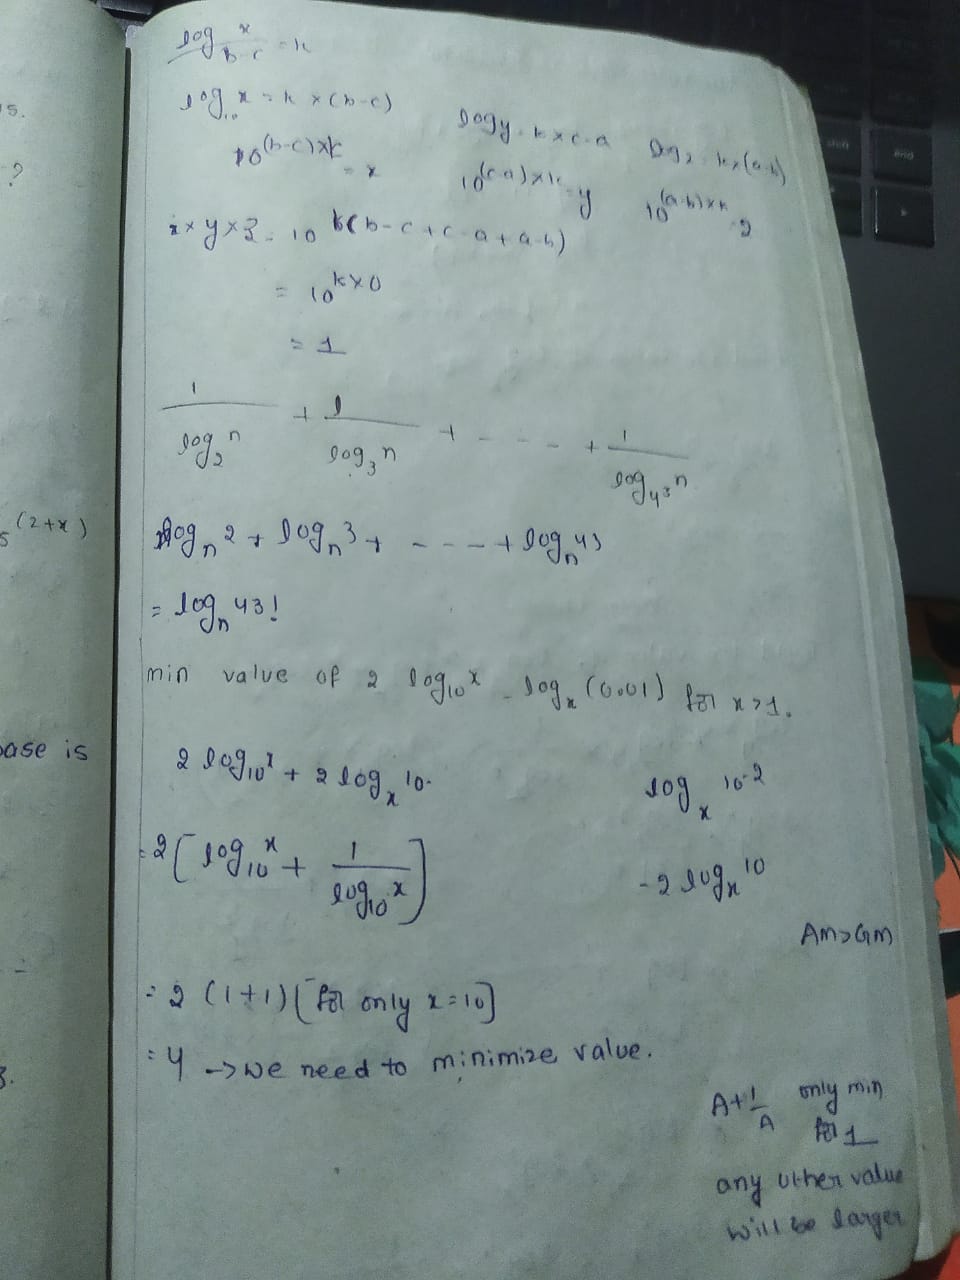 s.
?
5^(2+x)
base is
3.
log x/(b-c) = k
log₁₀ x = k × (b-c)
log y = k × c-a
log z = k × (a-b)
10^((b-c)×k) = x
10^((c-a)×k) = y
10^((a-b)×k) = z
x × y × z = 10^(k(b-c+c-a+a-b))
= 10^(k×0)
= 1
1/(log₂ n) + 1/(log₃ n) + - - - - + 1/(log₄₃ n)
logₙ 2 + logₙ 3 + - - - - + logₙ 43
= logₙ 43!
min value of 2 log₁₀ x - logₓ (0.01) for x>1.
2 log₁₀ x + 2 logₓ 10.
logₓ 10^-2
= 2 [ log₁₀ x + 1/(log₁₀ x) ]
-2 logₓ 10
AM>GM
= 2 (1+1) [for only x=10]
= 4 → we need to minimize value.
A+1/A only min
for 1
any other value
will be larger